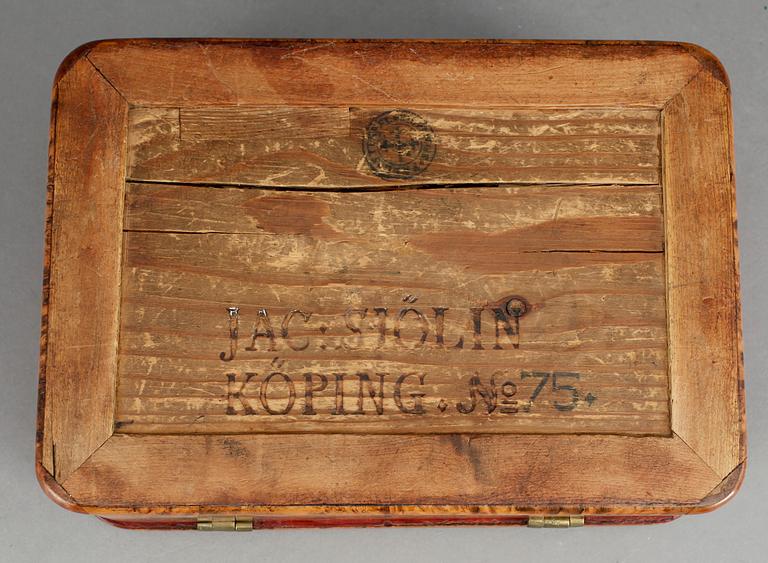 JAC: SJÖLIN
KÖPING. No 75.